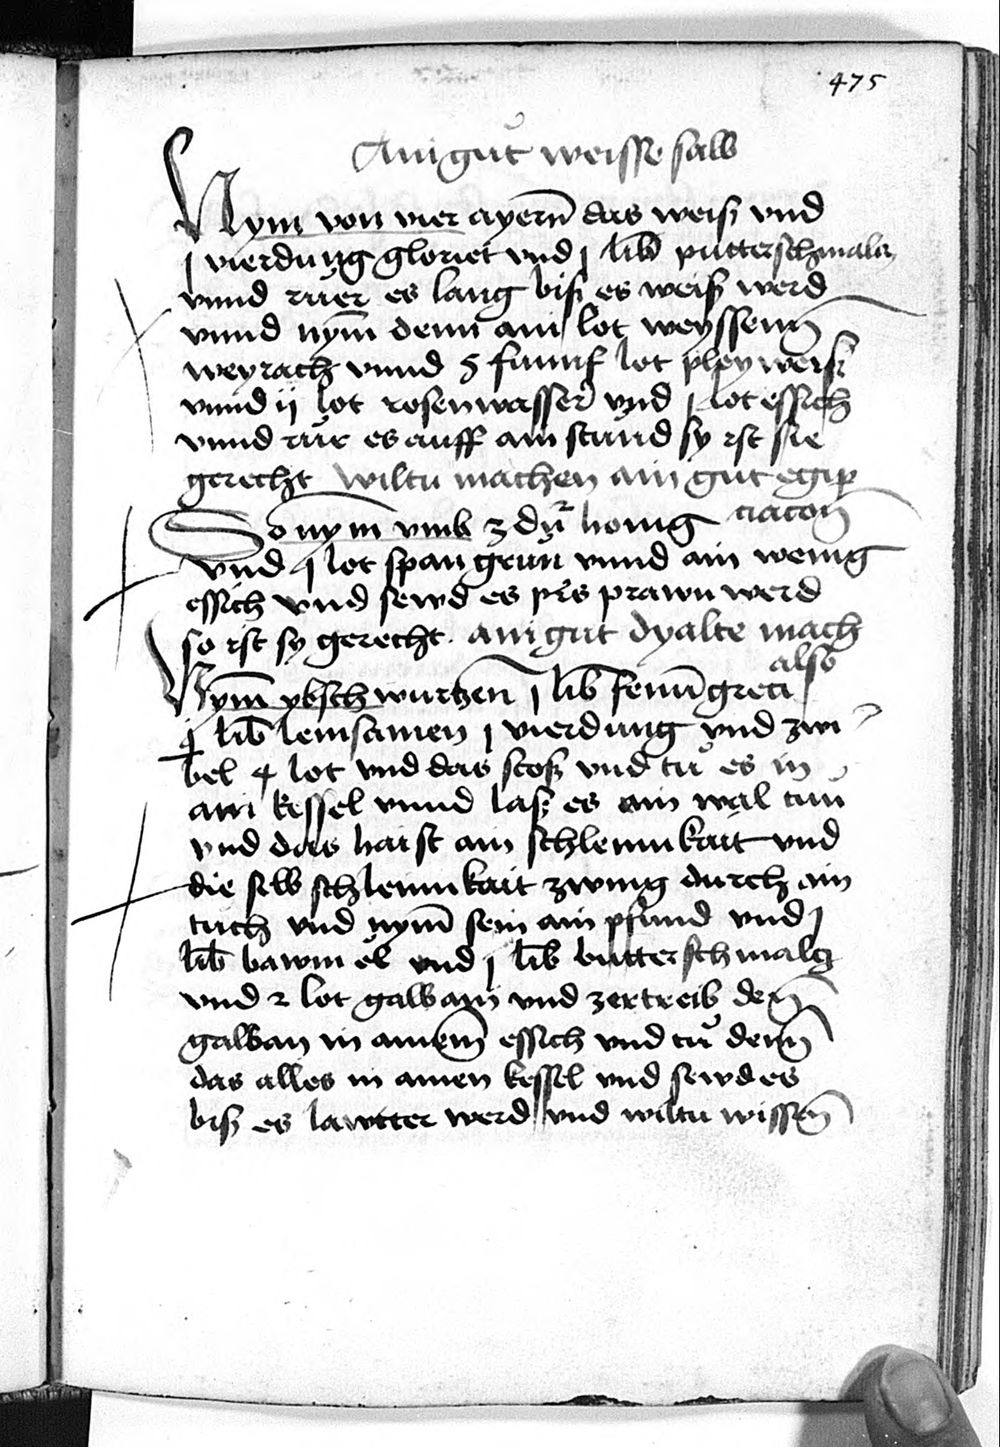 475
Ain gůt weisse salb
Nym von vier ayern̄ das weiß vnd
j vierdung gloriet vnd j lib putterschmalcz
vnnd rüer es lang biß es weiß werd
vnnd nym̄ denn ain lot weyssenn
weyrach vnnd 5 funnf lot pleyweiß
vnnd ij lot rosenwasser vnd j lot essich
vnnd rür es auff ain stund sy ist sie
gerecht wiltu machen ain gut egip
ciacon̄
So nym̄ vmb 3 dn̄ honig
vnd j lot spangrün vnnd ain wenig
essich vnd sewd es pis prawn werd
so ist sy gerecht. ain gut dyalte mach
also
Nym̄ ybschwurtzen j lib̄ fenu̅greci
j lib̄ leinsamen j vierdung vnd zwi
bel 4 lot vnd das stoß vnd tů es in
ain kessel vnnd laß es ain wal tun
vnd das haist ain schlennkait vnd
die selb schleimkait zwing durch ain
tuch vnd nym̄ sein ain pfund vnd j
lib̄ bawm öl vnd j lib̄ butterschmalcz
vnd 2 lot galban vnd zertreib den̄
galban in ainem̄ essich vnd tů denn
das alles in ainen kessel vnd sewd es
biß es lawtter werd vnd wiltu wissen̄